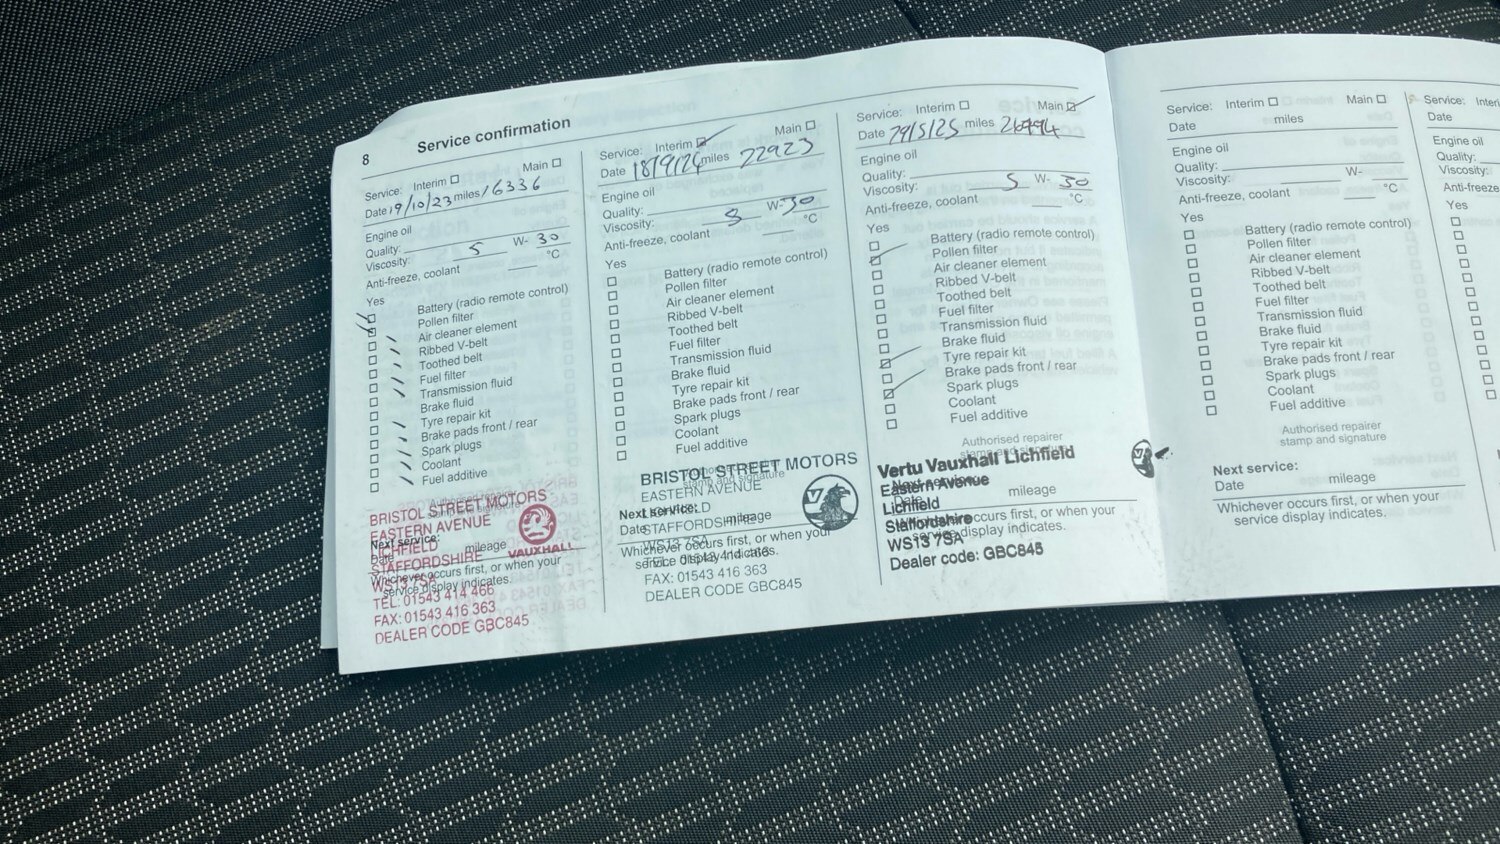 8 Service confirmation
Service: Interim Main
Date 19/10/23 miles 16336
Engine oil
Quality:
Viscosity: 5 W- 30
Anti-freeze, coolant °C
Yes
Battery (radio remote control)
Pollen filter
Air cleaner element
Ribbed V-belt
Toothed belt
Fuel filter
Transmission fluid
Brake fluid
Tyre repair kit
Brake pads front / rear
Spark plugs
Coolant
Fuel additive
BRISTOL STREET MOTORS
EASTERN AVENUE
LICHFIELD
STAFFORDSHIRE
WS13 7SA
TEL: 01543 414 466
FAX: 01543 416 363
DEALER CODE GBC845
VAUXHALL
Next service:
Date mileage
Whichever occurs first, or when your
service display indicates.
Service: Interim Main
Date 18/9/24 miles 22923
Engine oil
Quality:
Viscosity: 5 W- 30
Anti-freeze, coolant °C
Yes
Battery (radio remote control)
Pollen filter
Air cleaner element
Ribbed V-belt
Toothed belt
Fuel filter
Transmission fluid
Brake fluid
Tyre repair kit
Brake pads front / rear
Spark plugs
Coolant
Fuel additive
stamp and signature
BRISTOL STREET MOTORS
EASTERN AVENUE
STAFFORDSHIRE
WS13 7SA
FAX: 01543 416 363
DEALER CODE GBC845
Next service:
Date mileage
Whichever occurs first, or when your
service display indicates.
Service: Interim Main
Date 29/5/25 miles
Engine oil
Quality:
Viscosity: 5 W- 30
Anti-freeze, coolant °C
Yes
Battery (radio remote control)
Pollen filter
Air cleaner element
Ribbed V-belt
Toothed belt
Fuel filter
Transmission fluid
Brake fluid
Tyre repair kit
Brake pads front / rear
Spark plugs
Coolant
Fuel additive
Authorised repairer
stamp and signature
Vertu Vauxhall Lichfield
Eastern Avenue
Lichfield
Staffordshire
WS13 7SA
Dealer code: GBC845
Next service:
Date mileage
Whichever occurs first, or when your
service display indicates.
Service: Interim Main
Date miles
Engine oil
Quality:
Viscosity: W-
Anti-freeze, coolant °C
Yes
Battery (radio remote control)
Pollen filter
Air cleaner element
Ribbed V-belt
Toothed belt
Fuel filter
Transmission fluid
Brake fluid
Tyre repair kit
Brake pads front / rear
Spark plugs
Coolant
Fuel additive
Authorised repairer
stamp and signature
Next service:
Date mileage
Whichever occurs first, or when your
service display indicates.
Service:
Date
Engine oil
Quality:
Viscosity:
Anti-freeze
Yes